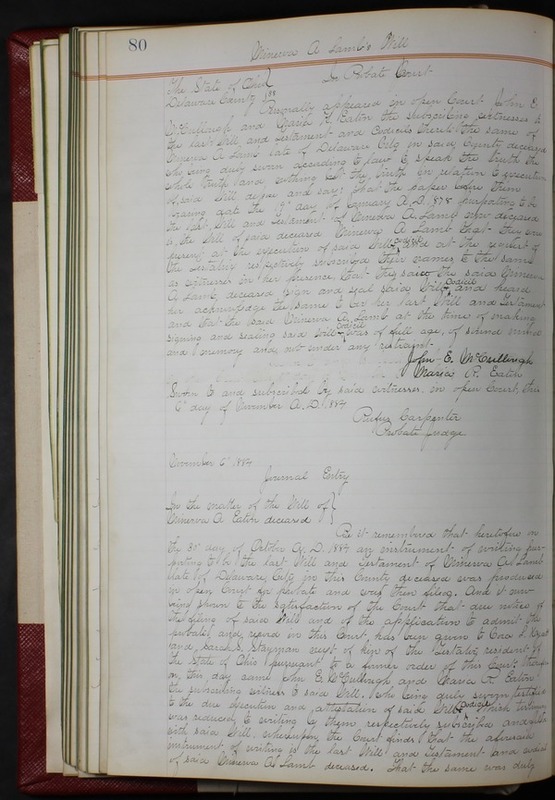 80
Minerva A Lamb's Will
The State of Ohio } In Probate Court
Delaware County } ss
Personally appeared in open Court John E.
McCullough and Maria R. Eaton the subscribing witnesses to
the last Will and Testament and Codicils thereto the same of
Minerva A Lamb late of Delaware City in said County deceased
who being duly sworn according to law to speak the truth the
whole truth and nothing but the truth in relation to execution
of said Will, depose and say: That the paper before them
bearing date the day of A.D. 1878 purporting to be
the last Will and Testament of Minerva A. Lamb now deceased
is the Will of said deceased Minerva A Lamb that they were
present at the execution of said Will & Codicil and at the request of
the testatrix respectively subscribed their names to the same
as witnesses in her presence that they saw the said Minerva
A Lamb, deceased sign and seal said Will & Codicil and heard
her acknowledge the same to be her last Will and Testament
and that the said Minerva A. Lamb at the time of making
signing and sealing said Will & Codicil was of full age, of sound mind
and memory and not under any restraint.
John E. McCullough
Maria R. Eaton
Sworn to and subscribed by said witnesses in open Court, this
6" day of November A.D. 1884
Rufus Carpenter
Probate Judge
November 6" 1884
Journal Entry
In the matter of the Will of }
Minerva A. Eaton deceased }
Be it remembered that heretofore on
the 30" day of October A.D. 1884 an instrument of writing pur-
porting to be the last Will and Testament of Minerva A Lamb
late of Delaware City in this County deceased was produced
in open Court for probate and was then filed. And it now
being shown to the satisfaction of the Court that due notice of
the filing of said Will and of the application to admit the
probate and record in this Court has been given to Cora L.
and Sarah S. Stayman next of kin of the testatrix resident of
the State of Ohio pursuant to a former order of this Court,
on this day came John E. McCullough and Maria R. Eaton
the subscribing witness to said Will. Who being duly sworn testified
to the due execution and attestation of said Will & Codicil which testimony
was reduced to writing by them respectively subscribed and
with said Will, whereupon the Court finds that the aforesaid
instrument of writing is the last Will and Testament and codicil
of said Minerva A Lamb deceased. That the same was duly